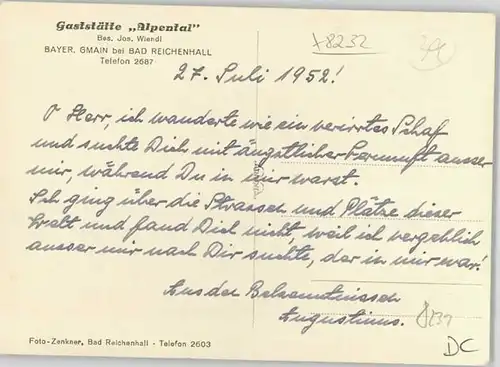 Gaststätte „Alpental"
Bes. Jos. Wiendl
BAYER. GMAIN bei BAD REICHENHALL
Telefon 2687
+8232
27. Juli 1952!
O Herr, ich wanderte wie ein verirrtes Schaf
und suchte Dich mit ängstlicher Vernunft ausser
mir, während Du in mir warst.
Ich ging über die Strassen und Plätze dieser
Welt und fand Dich nicht, weil ich vergeblich
ausser mir nach Dir suchte, der in mir war!
Aus den Bekenntnissen
Augustinus.
DC
Foto-Zenkner, Bad Reichenhall - Telefon 2603